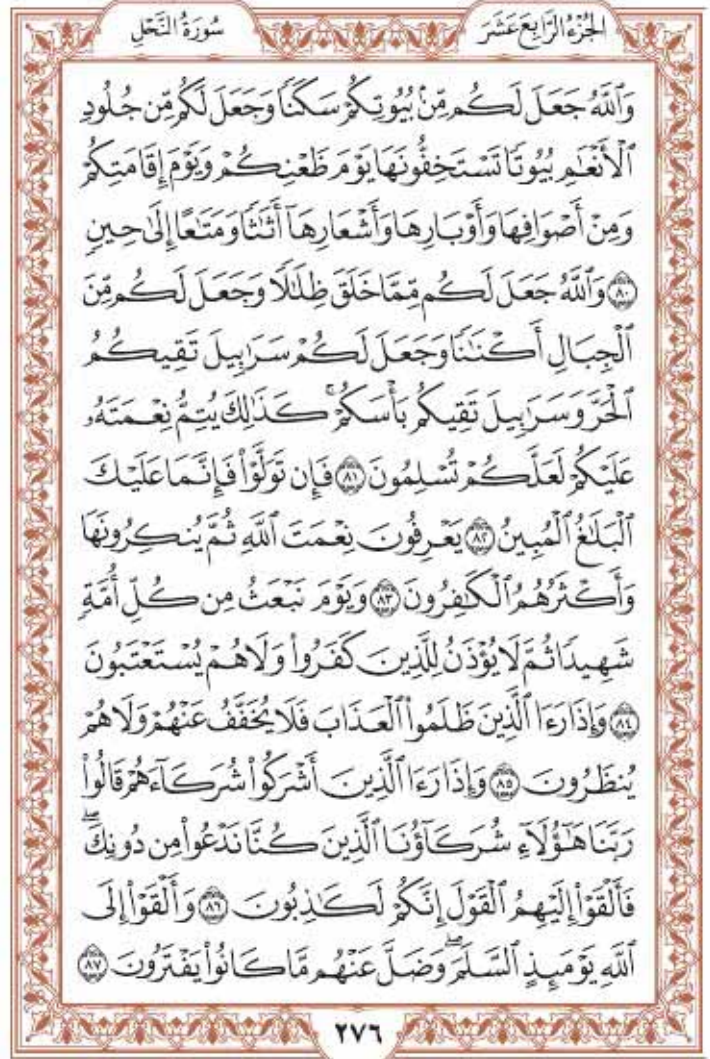 الجُزْءُ الرَّابِعَ عَشَرَ
سُورَةُ النَّحْلِ
وَٱللَّهُ جَعَلَ لَكُم مِّنۢ بُيُوتِكُمْ سَكَنًا وَجَعَلَ لَكُم مِّن جُلُودِ
ٱلْأَنْعَٰمِ بُيُوتًا تَسْتَخِفُّونَهَا يَوْمَ ظَعْنِكُمْ وَيَوْمَ إِقَامَتِكُمْ
وَمِنْ أَصْوَافِهَا وَأَوْبَارِهَا وَأَشْعَارِهَآ أَثَٰثًا وَمَتَٰعًا إِلَىٰ حِينٍ
٨٠ وَٱللَّهُ جَعَلَ لَكُم مِّمَّا خَلَقَ ظِلَٰلًا وَجَعَلَ لَكُم مِّنَ
ٱلْجِبَالِ أَكْنَٰنًا وَجَعَلَ لَكُمْ سَرَٰبِيلَ تَقِيكُمُ
ٱلْحَرَّ وَسَرَٰبِيلَ تَقِيكُم بَأْسَكُمْ ۚ كَذَٰلِكَ يُتِمُّ نِعْمَتَهُۥ
عَلَيْكُمْ لَعَلَّكُمْ تُسْلِمُونَ ٨١ فَإِن تَوَلَّوْا۟ فَإِنَّمَا عَلَيْكَ
ٱلْبَلَٰغُ ٱلْمُبِينُ ٨٢ يَعْرِفُونَ نِعْمَتَ ٱللَّهِ ثُمَّ يُنكِرُونَهَا
وَأَكْثَرُهُمُ ٱلْكَٰفِرُونَ ٨٣ وَيَوْمَ نَبْعَثُ مِن كُلِّ أُمَّةٍ
شَهِيدًا ثُمَّ لَا يُؤْذَنُ لِلَّذِينَ كَفَرُوا۟ وَلَا هُمْ يُسْتَعْتَبُونَ
٨٤ وَإِذَا رَءَا ٱلَّذِينَ ظَلَمُوا۟ ٱلْعَذَابَ فَلَا يُخَفَّفُ عَنْهُمْ وَلَا هُمْ
يُنظَرُونَ ٨٥ وَإِذَا رَءَا ٱلَّذِينَ أَشْرَكُوا۟ شُرَكَآءَهُمْ قَالُوا۟
رَبَّنَا هَٰٓؤُلَآءِ شُرَكَآؤُنَا ٱلَّذِينَ كُنَّا نَدْعُوا۟ مِن دُونِكَ ۖ
فَأَلْقَوْا۟ إِلَيْهِمُ ٱلْقَوْلَ إِنَّكُمْ لَكَٰذِبُونَ ٨٦ وَأَلْقَوْا۟ إِلَى
ٱللَّهِ يَوْمَئِذٍ ٱلسَّلَمَ ۖ وَضَلَّ عَنْهُم مَّا كَانُوا۟ يَفْتَرُونَ ٨٧
٢٧٦